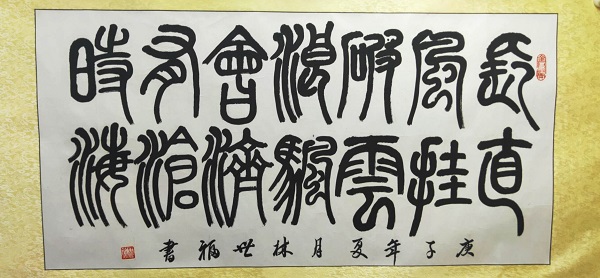 長風破浪會有時
直挂雲颿濟滄海
庚子年夏月林世福書